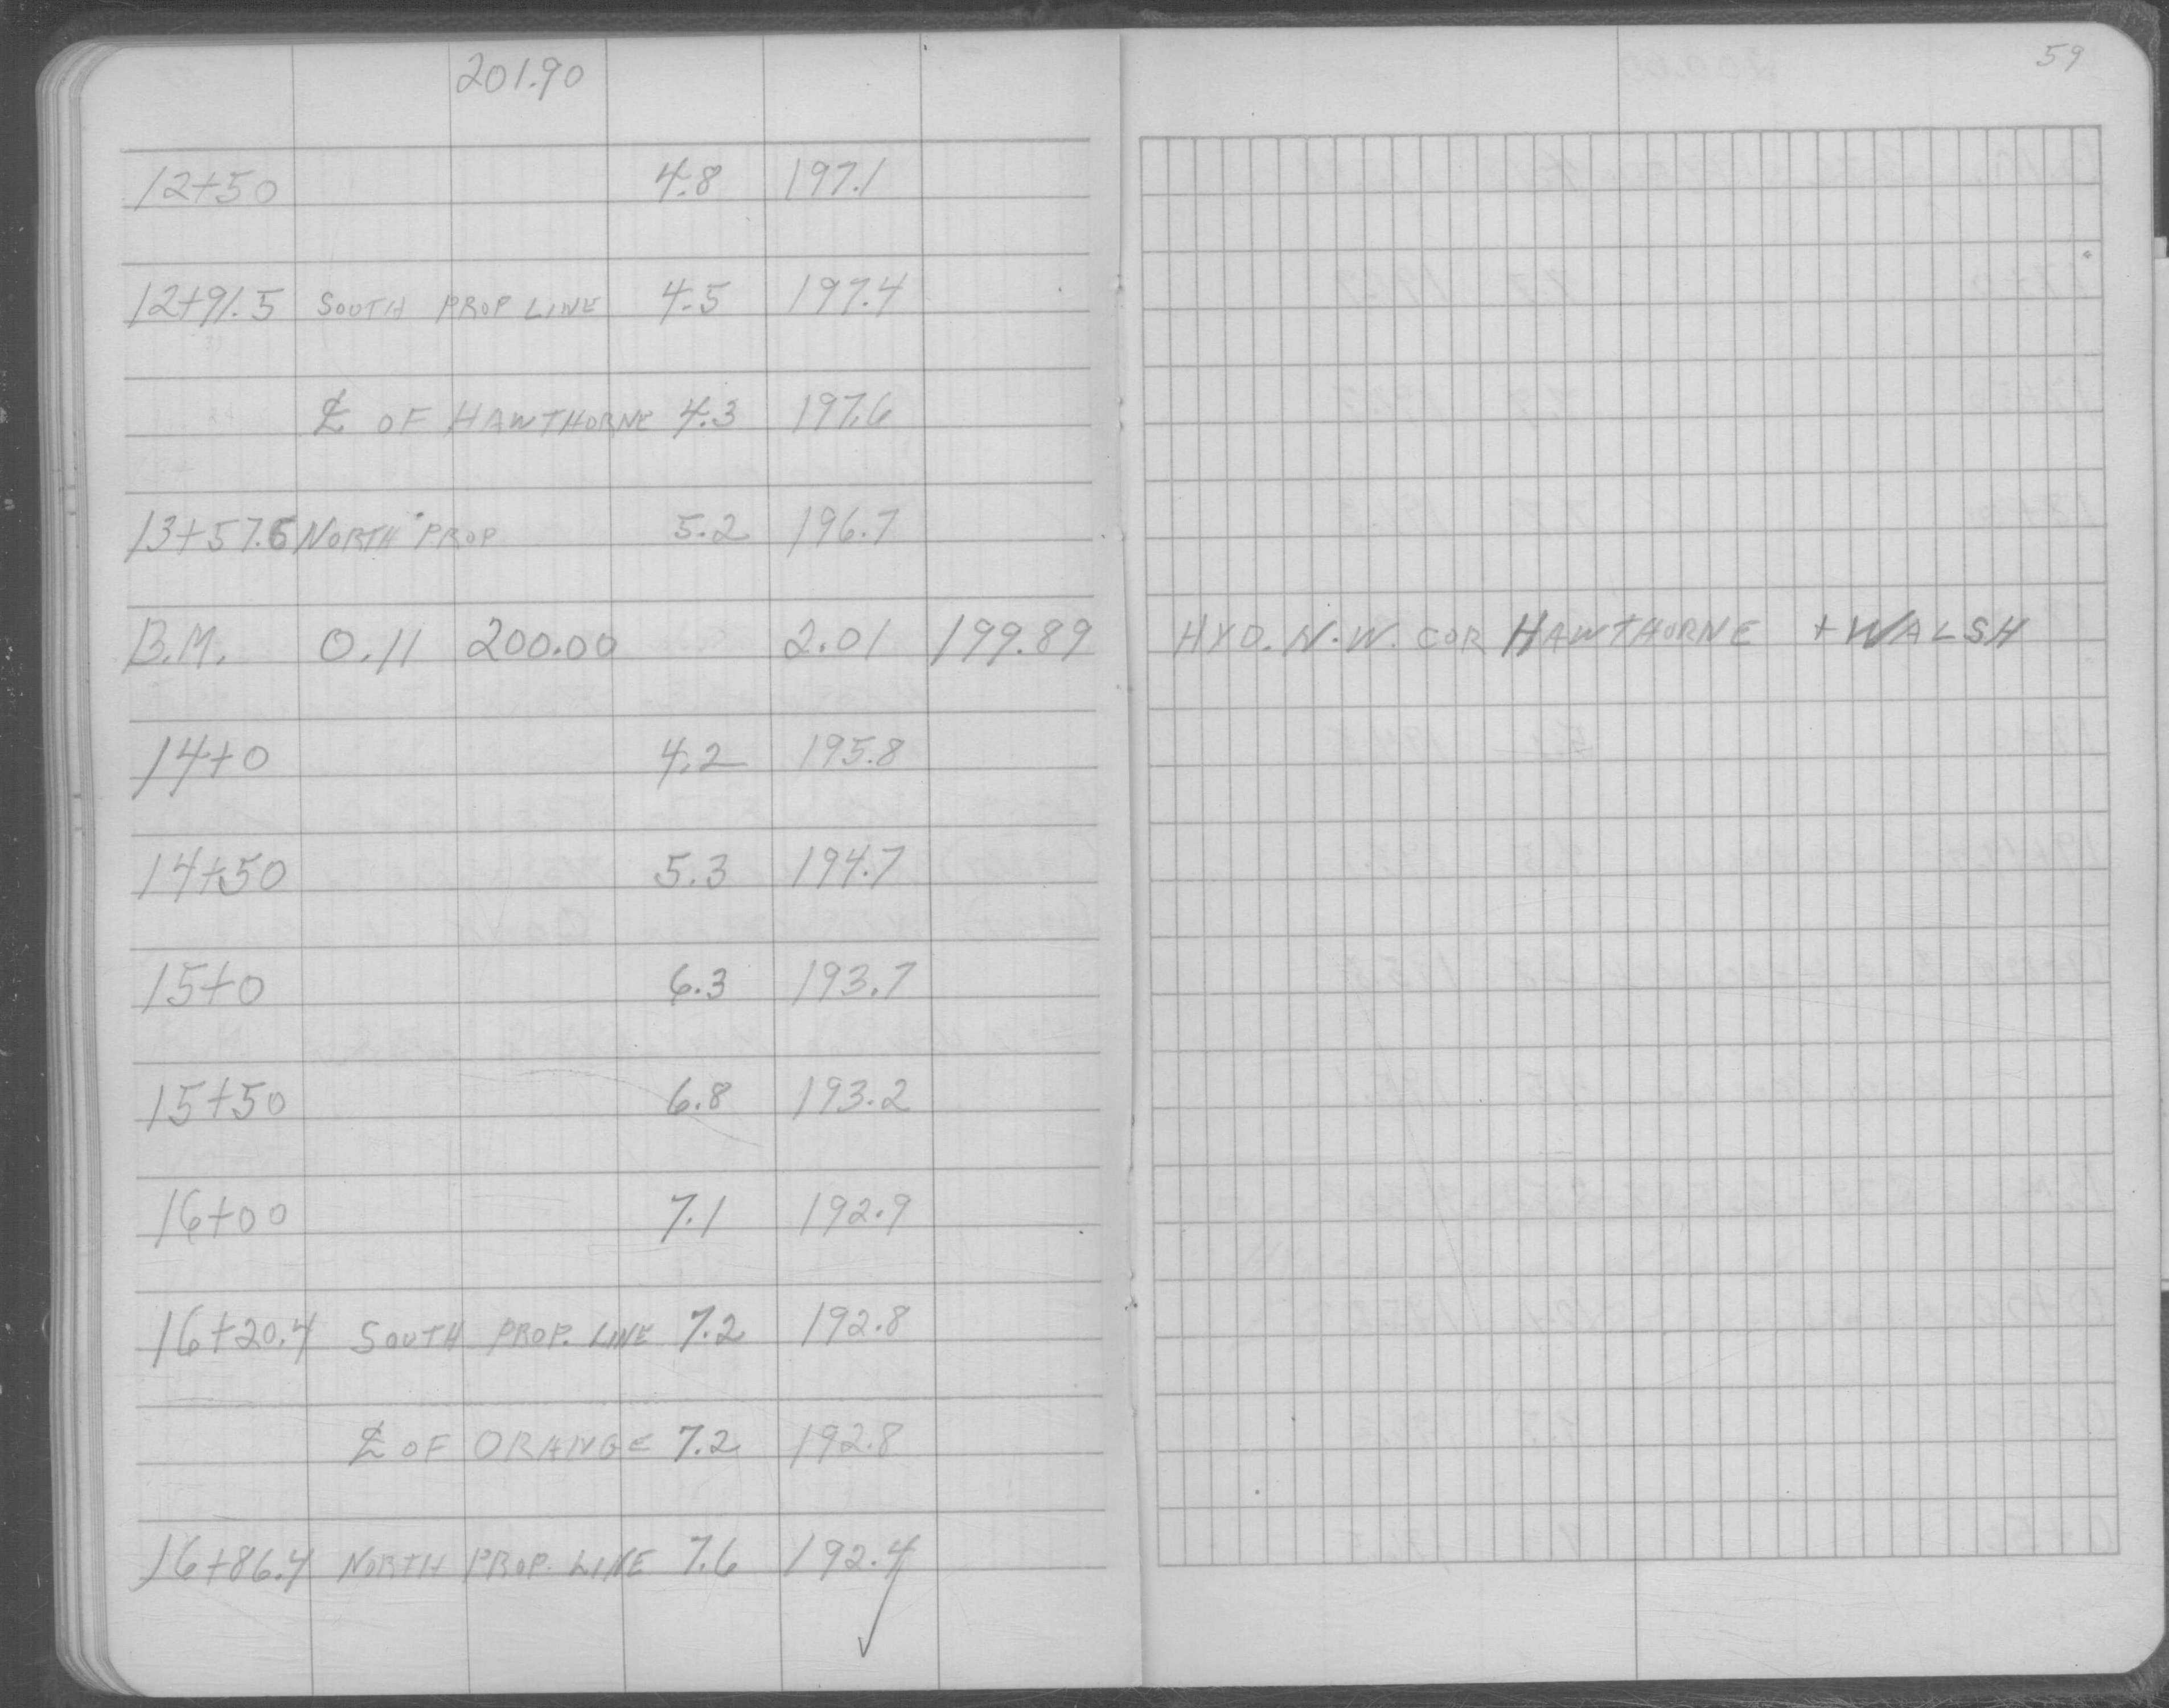 201.90
59
12+50 4.8 197.1
12+91.5 SOUTH PROP LINE 4.5 197.4
℄ OF HAWTHORNE 4.3 197.6
13+57.5 NORTH PROP 5.2 196.7
B.M. 0.11 200.00 2.01 199.89 HYD. N.W. COR HAWTHORNE + WALSH
14+0 4.2 195.8
14+50 5.3 194.7
15+0 6.3 193.7
15+50 6.8 193.2
16+00 7.1 192.9
16+20.4 SOUTH PROP. LINE 7.2 192.8
℄ OF ORANGE 7.2 192.8
16+86.4 NORTH PROP. LINE 7.6 192.4